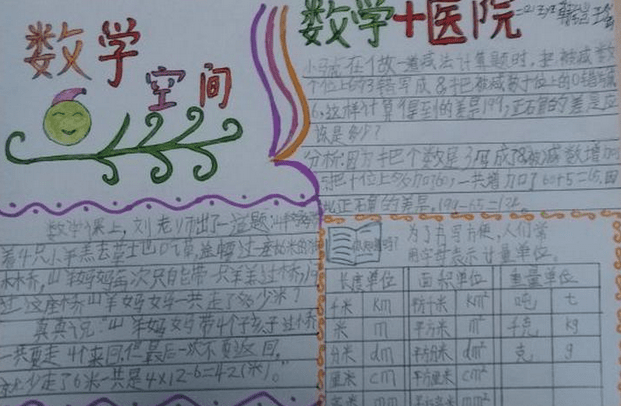 数学
空间
数学+医院
小马虎在做一道减法计算题时,把被减数
个位上的3错写成8,把被减数十位上的0错写成
6,这样计算得到的差是199,正确的差应
该是多少?
分析:因为把个数是3写成8被减数增加
5,把十位上的0加60,一共增加了60+5=65,因
此正确的差是,199-65=134。
数学课上,刘老师出了一道题:山羊妈妈
着4只小羊羔去草土地吃草,途
木桥,山羊妈妈每次只能带一只羊羔过桥,
过这座桥山羊妈妈一共走了多少米?
真真说:山羊妈妈带4个孩子过桥
一共要走4个来回,但最后一次不要返回,
就少走了6米一共是4×12-6=42(米)。
你知道吗?
为了书写方便,人们常
用字母表示计量单位。
长度单位 面积单位 重量单位
千米 km 平方千米 km² 吨 t
米 m 平方米 m² 千克 kg
分米 dm 平方分米 dm² 克 g
厘米 cm 平方厘米 cm²
毫米 mm 平方毫米 mm²